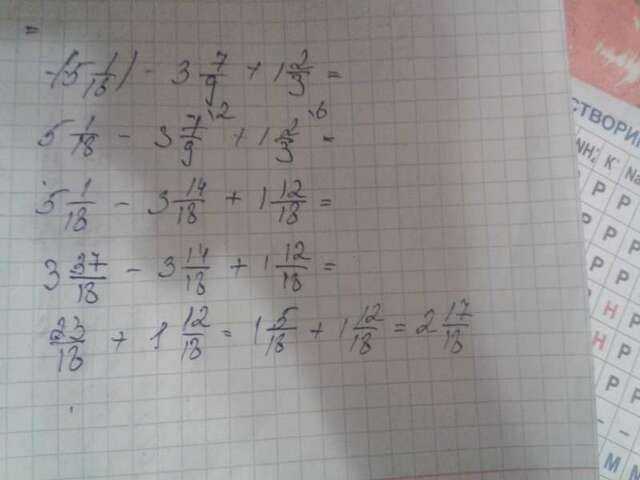 =
-(5 1/18) - 3 7/9 + 1 2/3 =
5 1/18 - 3 7/9 ·2 + 1 2/3 ·6 =
5 1/18 - 3 14/18 + 1 12/18 =
3 37/18 - 3 14/18 + 1 12/18 =
23/18 + 1 12/18 = 1 5/18 + 1 12/18 = 2 17/18
СТВОРИМ
K⁺ Na
P P
P P
P P
P P
Н P
Н P
P P
P P
- -
М М